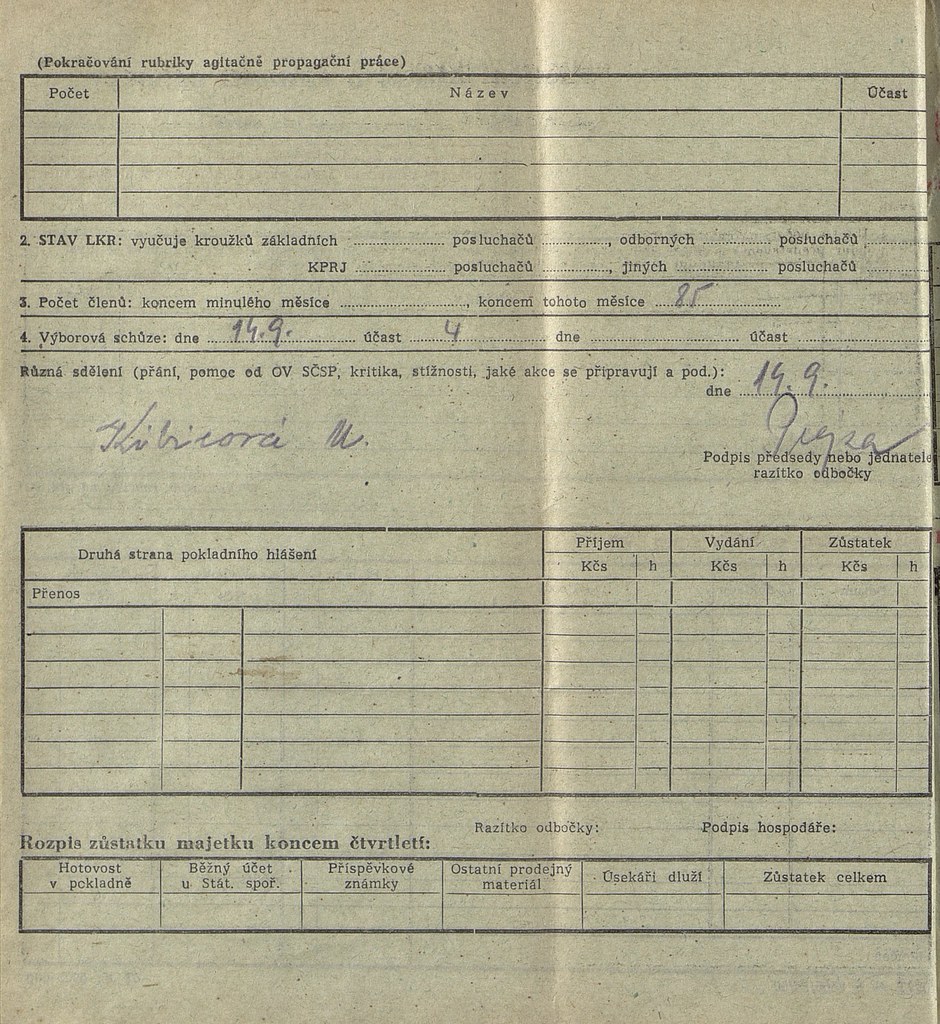 (Pokračování rubriky agitačně propagační práce)
Počet Název Účast
2. STAV LKR: vyučuje kroužků základních ........ posluchačů ........, odborných ........ posluchačů ........
KPRJ ........ posluchačů ........, jiných ........ posluchačů ........
3. Počet členů: koncem minulého měsíce ........, koncem tohoto měsíce 85
4. Výborová schůze: dne 14.9. účast 4 dne ........ účast ........
Různá sdělení (přání, pomoc od OV SČSP, kritika, stížnosti, jaké akce se připravují a pod.):
dne 14. 9.
Kubicová M.
Podpis předsedy nebo jednatele
razítko odbočky
Druhá strana pokladního hlášení Příjem Vydání Zůstatek
Kčs h Kčs h Kčs h
Přenos
Razítko odbočky: Podpis hospodáře:
Rozpis zůstatku majetku koncem čtvrtletí:
Hotovost v pokladně Běžný účet u Stát. spoř. Příspěvkové známky Ostatní prodejný materiál Úsekáři dluží Zůstatek celkem